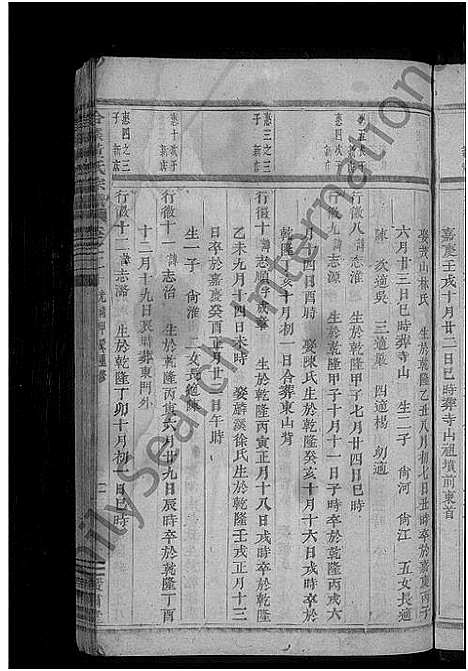 嘉慶壬戌十月廿二日巳時葬寺山祖墳前東首
娶茂山林氏 生於乾隆乙丑八月初七日丑時卒於嘉慶丙子
六月廿三日巳時葬寺山 生二子 尙河 尙江 五女長適
陳 次適吳 三適 四適楊 幼適
行微八諱志淮 生於乾隆甲子七月廿四日巳時
行微九諱志源 生於乾隆甲子十月十一日子時卒於乾隆丙戌六
十四日酉時 娶陳氏生於乾隆癸亥十月十六日戌時卒於
乾隆丁亥十月初一日合葬東山背
行微十諱志順字成 生於乾隆丙寅正月十八日戌時卒於乾隆
乙未九月十四日未時 娶麟溪徐氏生於乾隆壬戌正月十三
日卒於嘉慶癸酉正月廿一日午時
生二子 尙淮 二女長適陳
行微十一諱志治 生於乾隆丙寅六月廿九日辰時卒於乾隆丁酉
十二月十九日辰時葬東門外
行微十二諱志潛 生於乾隆丁卯十月初一日巳時
惠四次子 新庄
惠三之三子 新庄
惠十次子 新庄
惠四之三子 新庄
黃氏宗譜